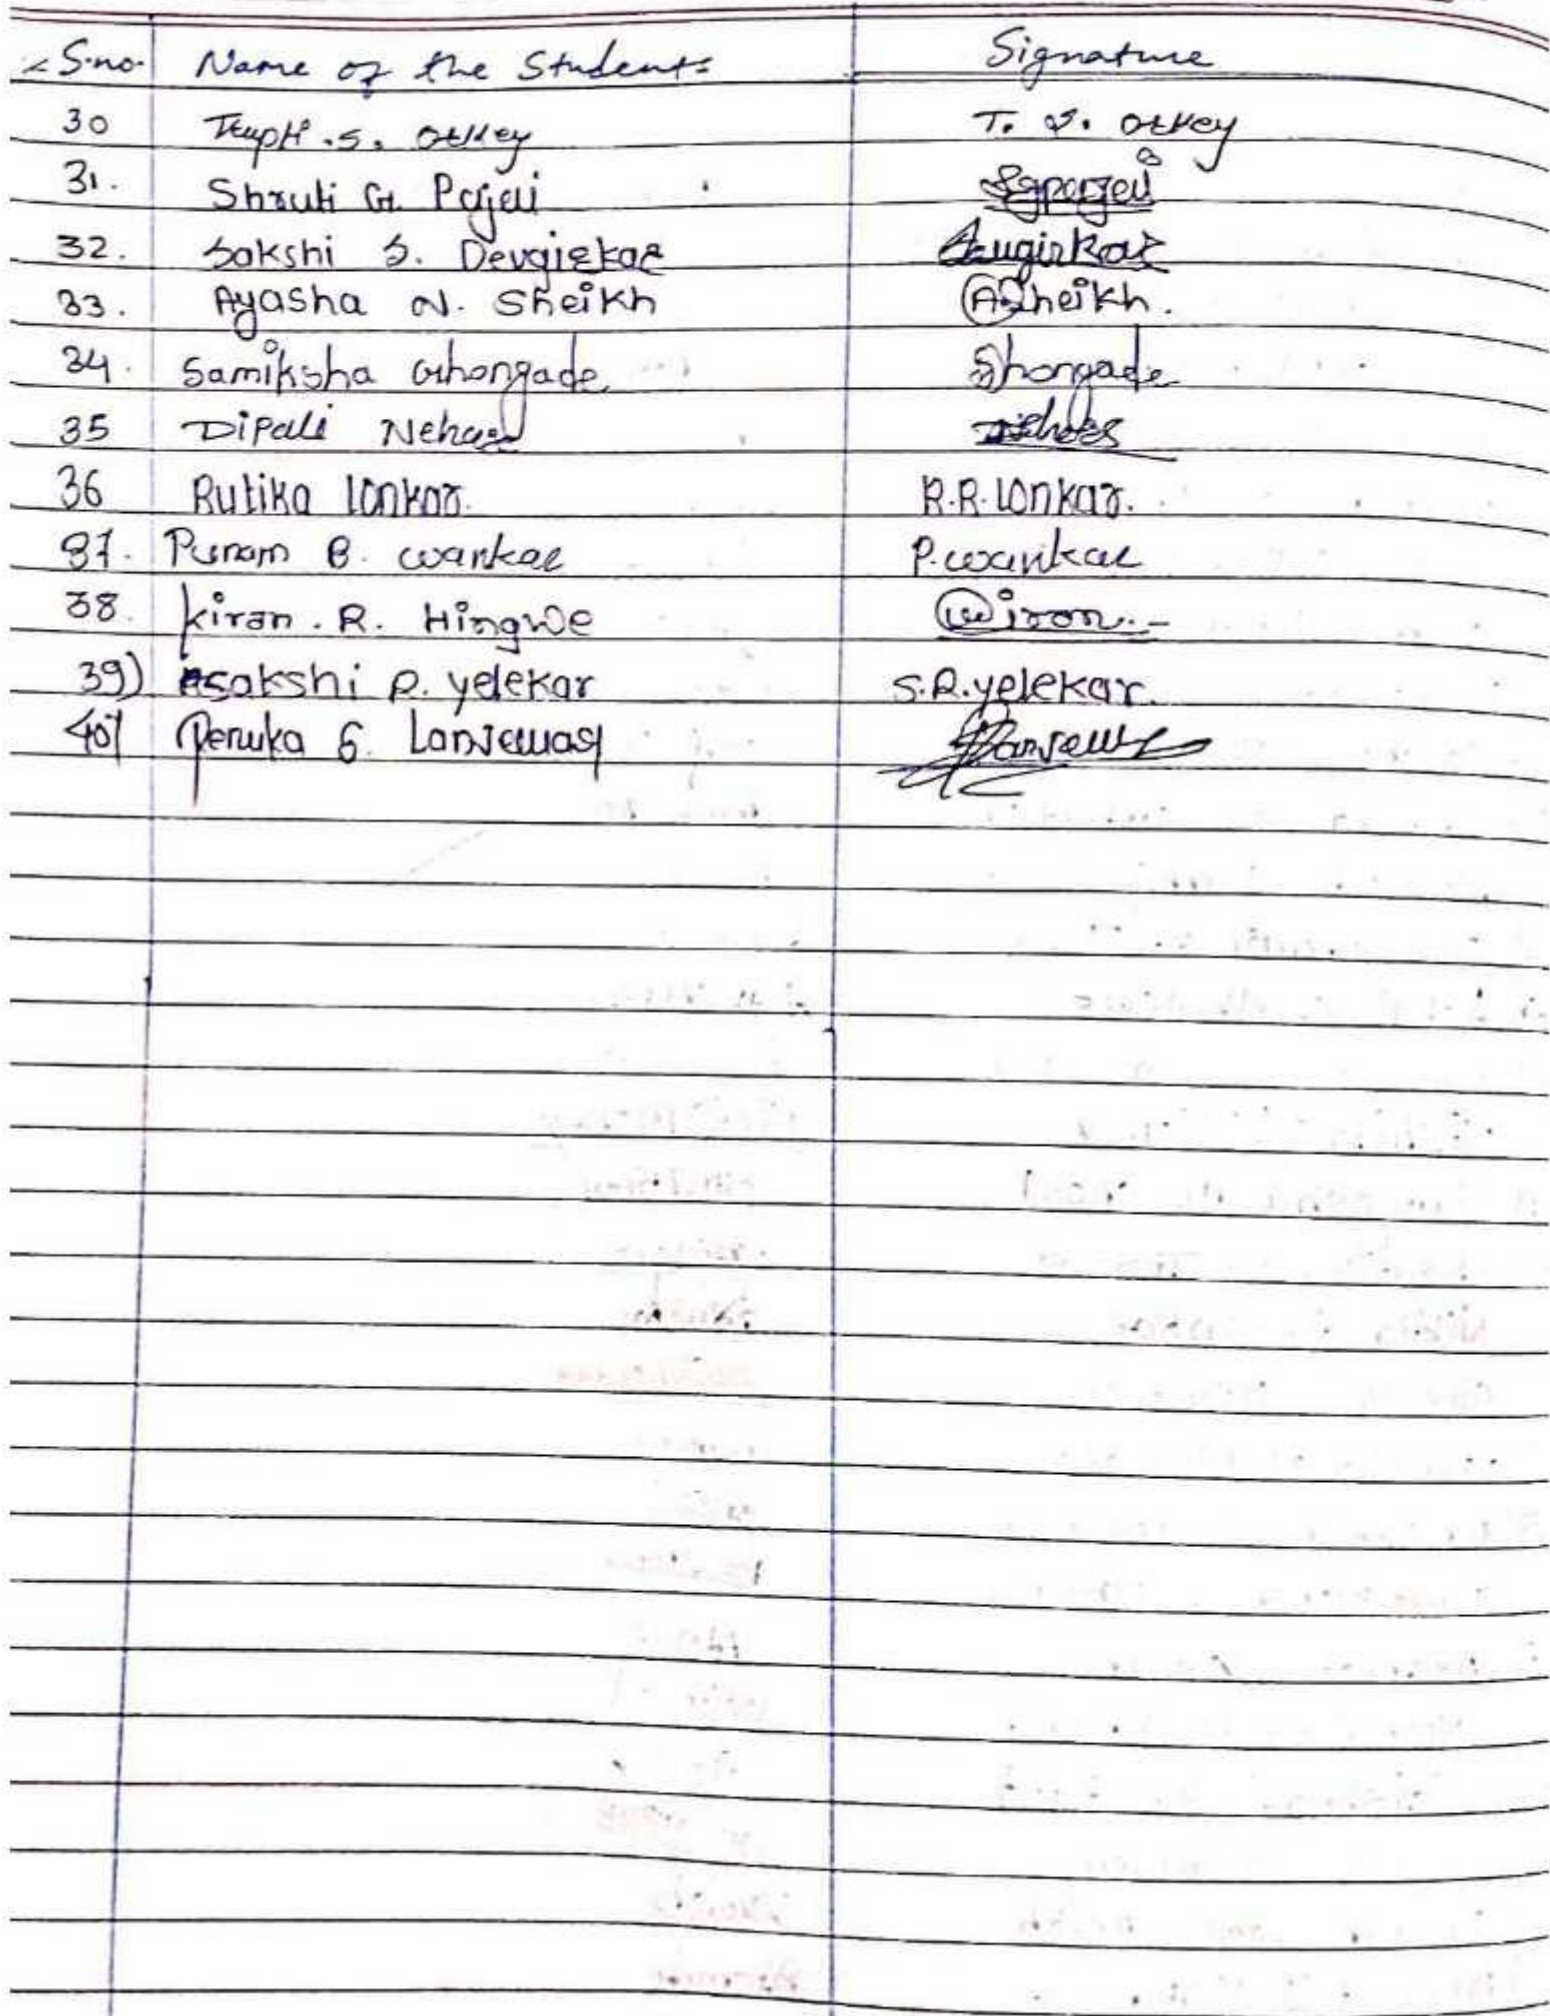 S.no. Name of the Students Signature
30 Trupti .S. Otkey T. S. Otkey
31. Shruti G. Pajai
32. Sakshi S. Devgirkar
33. Ayasha N. Sheikh A Sheikh.
34. Samiksha Ghongade Ghongade
35 Dipali Nehare
36 Rutika lonkar. R.R. lonkar.
37. Punam B. wankar P. wankar
38. kiran . R. Hingwe
39) Sakshi R. yelekar S.R. yelekar.
40) Renuka G. Lanjewar